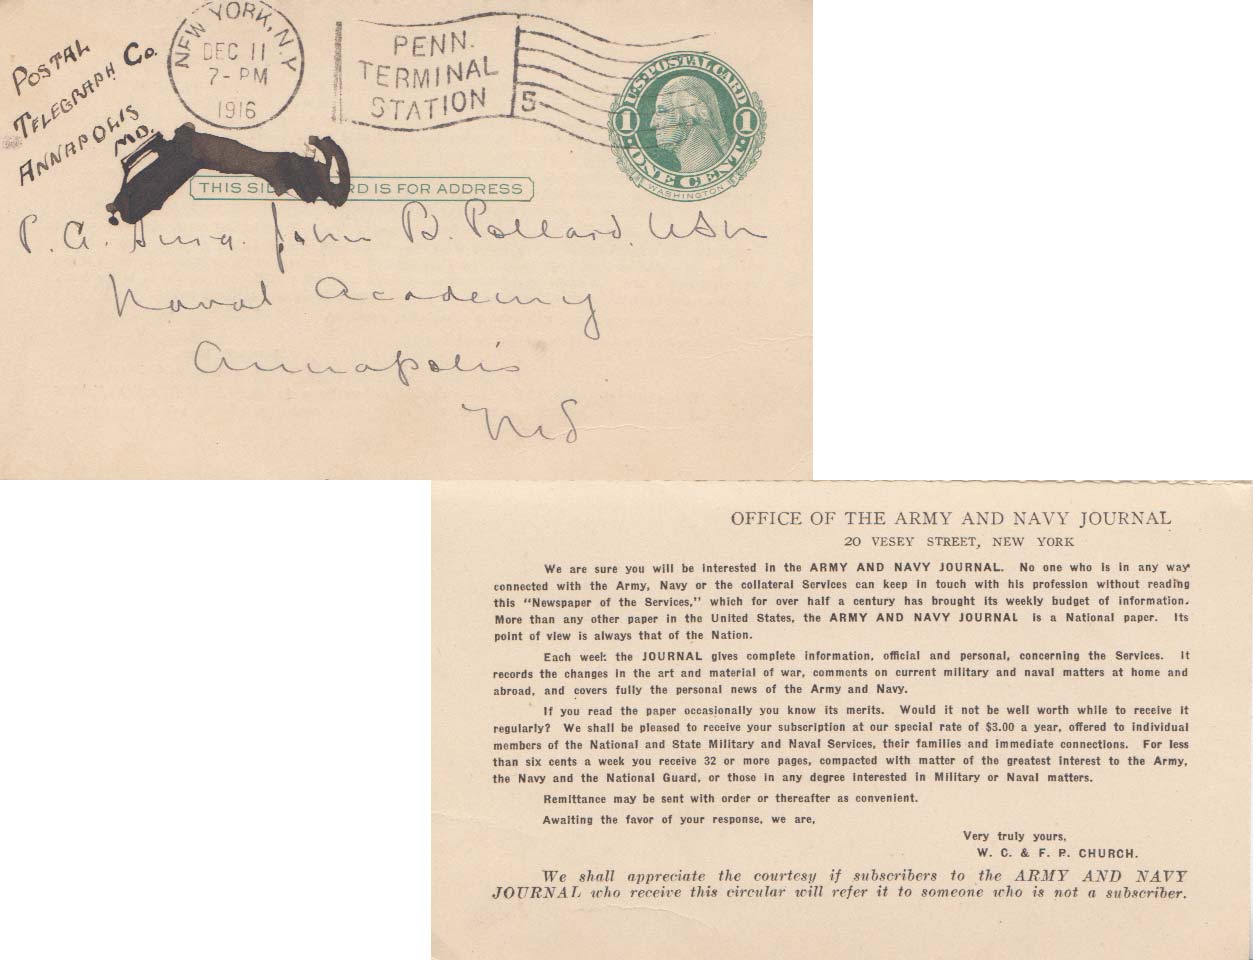 POSTAL
TELEGRAPH Co.
ANNAPOLIS
MD.
NEW YORK, N.Y.
DEC 11
7-PM
1916
PENN.
TERMINAL
STATION
5
U.S. POSTAL CARD
1 1
ONE CENT
WASHINGTON
THIS SI RD IS FOR ADDRESS
P. A. Surg. John B. Pollard. USN
Naval Academy
Annapolis
Md
OFFICE OF THE ARMY AND NAVY JOURNAL
20 VESEY STREET, NEW YORK
We are sure you will be interested in the ARMY AND NAVY JOURNAL. No one who is in any way
connected with the Army, Navy or the collateral Services can keep in touch with his profession without reading
this "Newspaper of the Services," which for over half a century has brought its weekly budget of information.
More than any other paper in the United States, the ARMY AND NAVY JOURNAL is a National paper. Its
point of view is always that of the Nation.
Each week the JOURNAL gives complete information, official and personal, concerning the Services. It
records the changes in the art and material of war, comments on current military and naval matters at home and
abroad, and covers fully the personal news of the Army and Navy.
If you read the paper occasionally you know its merits. Would it not be well worth while to receive it
regularly? We shall be pleased to receive your subscription at our special rate of $3.00 a year, offered to individual
members of the National and State Military and Naval Services, their families and immediate connections. For less
than six cents a week you receive 32 or more pages, compacted with matter of the greatest interest to the Army,
the Navy and the National Guard, or those in any degree interested in Military or Naval matters.
Remittance may be sent with order or thereafter as convenient.
Awaiting the favor of your response, we are,
Very truly yours,
W. C. & F. P. CHURCH.
We shall appreciate the courtesy if subscribers to the ARMY AND NAVY
JOURNAL who receive this circular will refer it to someone who is not a subscriber.